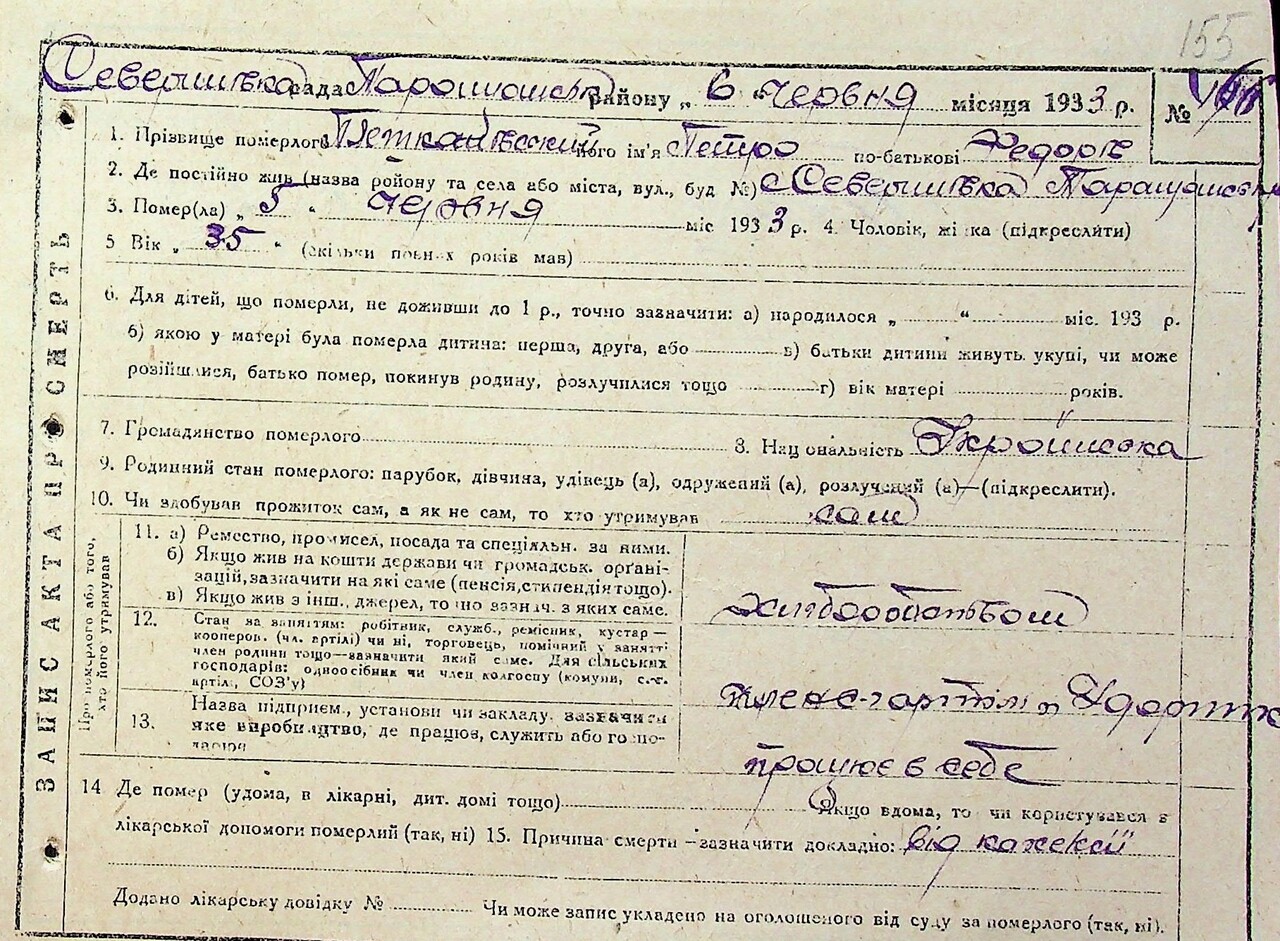 155
Северинівка рада Таращанськ району „ 6 “ червня місяця 1933 р. №
1. Прізвище померлого Петканівський його ім'я Петро по-батькові Федорів
2. Де постійно жив (назва району та села або міста, вул., буд №) с Северинівка Таращанськ
3. Помер(ла) „ 5 “ червня міс 1933 р. 4. Чоловік, жінка (підкреслити)
5 Вік „ 35 “ (скільки повних років мав)
6. Для дітей, що померли, не доживши до 1 р., точно зазначити: а) народилося „ “ міс. 193 р.
б) якою у матері була померла дитина: перша, друга, або в) батьки дитини живуть укупі, чи може
розійшлися, батько помер, покинув родину, розлучилися тощо г) вік матері років.
7. Громадянство померлого 8. Національність Українська
9. Родинний стан померлого: парубок, дівчина, удівець (а), одружений (а), розлучений (а)—(підкреслити).
10. Чи здобував прожиток сам, а як не сам, то хто утримував сам
ЗАПИС АКТА ПРО СМЕРТЬ
Про померлого або того,
хто його утримував
11. а) Ремество, промисел, посада та спеціяльн. за ними.
б) Якщо жив на кошти держави чи громадськ. орґані-
зацій, зазначити на які саме (пенсія, стипендія тощо).
в) Якщо жив з інш., джерел, то що зазнач. з яких саме.
хліборобством
12. Стан за заняттям: робітник, служб., ремісник, кустар—
кооперов. (чл. артілі) чи ні, торговець, помічний у занятті
член родини тощо—зазначити який саме. Для сільських
господарів: одноосібник чи член колгоспу (комуни, с.-г.
артілі, СОЗ'у)
член с-г артілі
13. Назва підприєм., установи чи закладу, зазначити
яке виробництво, де працює, служить або госпо-
дарює
працює в себе
14 Де помер (удома, в лікарні, дит. домі тощо) Якщо вдома, то чи користувався з
лікарської допомоги померлий (так, ні) 15. Причина смерти – зазначити докладно: від кахексії
Додано лікарську довідку № Чи може запис укладено на оголошеного від суду за померлого (так, ні).